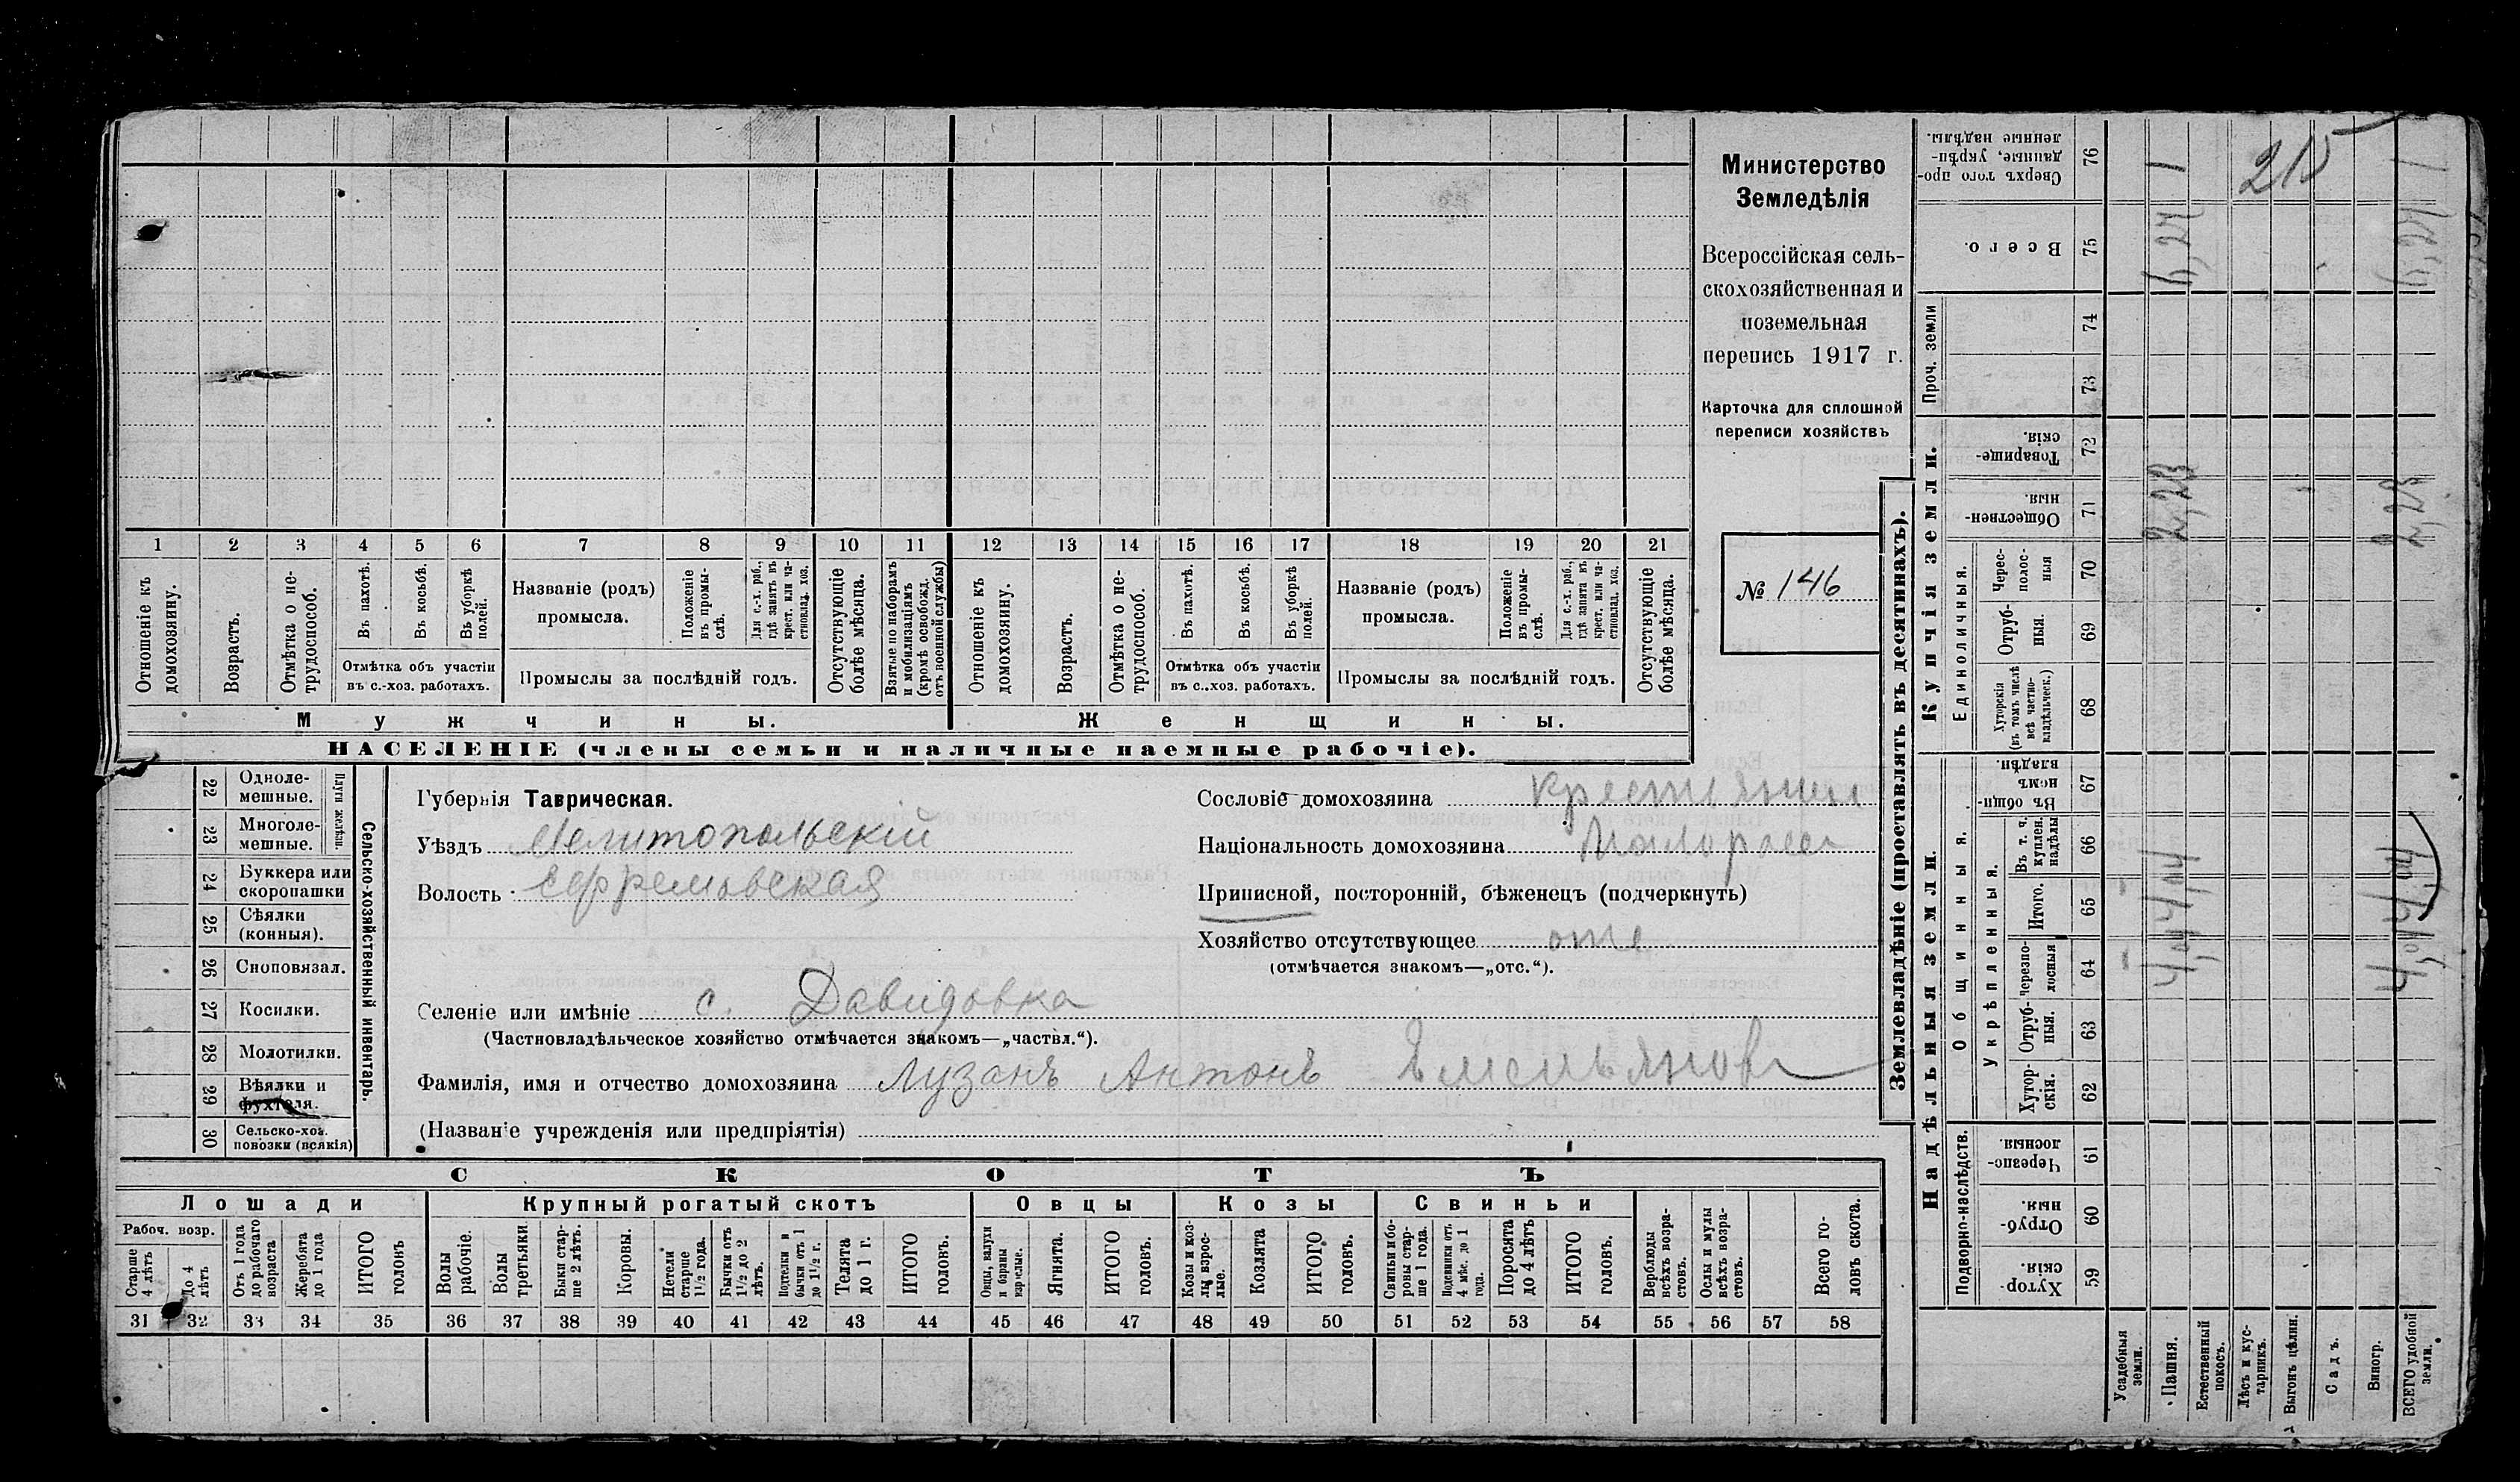 1 2 3 4 5 6 7 8 9 10 11 12 13 14 15 16 17 18 19 20 21
Отношеніе къ домохозяину.
Возрастъ.
Отмѣтка о не-
трудоспособ.
Въ пахотѣ.
Въ косьбѣ.
Въ уборкѣ полей.
Отмѣтка объ участіи
въ с.-хоз. работахъ.
Названіе (родъ)
промысла.
Положеніе въ промы-
слѣ.
Для с.-х. раб., гдѣ занятъ въ крест. или ча-
стновлад. хоз.
Промыслы за послѣдній годъ.
Отсутствующіе
болѣе мѣсяца.
Взятые по наборамъ
и мобилизаціямъ
(кромѣ освобожд.
отъ военной службы)
Отношеніе къ
домохозяину.
Возрастъ.
Отмѣтка о не-
трудоспособ.
Въ пахотѣ.
Въ косьбѣ.
Въ уборкѣ полей.
Отмѣтка объ участіи
въ с.-хоз. работахъ.
Названіе (родъ)
промысла.
Положеніе въ промы-
слѣ.
Для с.-х. раб., гдѣ занята въ крест. или ча-
стновлад. хоз.
Промыслы за послѣдній годъ.
Отсутствующіе
болѣе мѣсяца.
Мужчины.
Женщины.
НАСЕЛЕНІЕ (члены семьи и наличные наемные рабочіе).
Министерство
Земледѣлія
Всероссійская сель-
скохозяйственная и
поземельная
перепись 1917 г.
Карточка для сплошной
переписи хозяйствъ
№ 146
22 Одноле-
мешные.
23 Многоле-
мешные.
Плуги желѣзн.
24 Буккера или
скоропашки
25 Сѣялки
(конныя).
26 Сноповязал.
27 Косилки.
28 Молотилки.
29 Вѣялки и
фухтеля.
30 Сельско-хоз.
повозки (всякія)
Сельско-хозяйственный инвентарь.
Губернія Таврическая.
Уѣздъ Мелитопольскій
Волость Ефремовская
Сословіе домохозяина крестьянин
Національность домохозяина Малоросс
Приписной, посторонній, бѣженецъ (подчеркнуть)
Хозяйство отсутствующее отс
(отмѣчается знакомъ—„отс.“).
Селеніе или имѣніе с. Давидовка
(Частновладѣльческое хозяйство отмѣчается знакомъ—„частвл.“).
Фамилія, имя и отчество домохозяина Лузанъ Антонъ Емельянов
(Названіе учрежденія или предпріятія)
СКОТЪ
Лошади
Крупный рогатый скотъ
Овцы
Козы
Свиньи
Рабоч. возр.
Старше
4 лѣтъ
До 4
лѣтъ
Отъ 1 года
до рабочаго
возраста
Жеребята
до 1 года
ИТОГО
головъ
Волы
рабочіе.
Волы
третьяки
Быки стар-
ше 2 лѣтъ.
Коровы.
Нетели
старше
1½ года.
Бычки отъ
1½ до 2
лѣтъ.
Подтелки и
бычки отъ 1
до 1½ г.
Телята
до 1 г.
ИТОГО
головъ.
Овцы, валухи
и бараны
взрослые.
Ягнята.
ИТОГО
головъ.
Козы и коз-
лы взрос-
лые.
Козлята
ИТОГО
головъ.
Свиньи и бо-
ровы стар-
ше 1 года.
Подсвинки отъ
4 мѣс. до 1
года.
Поросята
до 4 лѣтъ
ИТОГО
головъ.
Верблюды
всѣхъ возра-
стовъ.
Ослы и мулы
всѣхъ возра-
стовъ.
Всего го-
ловъ скота.
31 32 33 34 35 36 37 38 39 40 41 42 43 44 45 46 47 48 49 50 51 52 53 54 55 56 57 58
Землевладѣніе (проставлять въ десятинахъ).
Надѣльныя земли.
Купчія земли.
Проч. земли
Подворно-наслѣдств.
Общинныя.
Укрѣпленныя.
Единоличныя.
Хутор-
скія. 59
Отруб-
ныя. 60
Черезпо-
лосныя 61
Хутор-
скія. 62
Отруб-
ныя. 63
Черезпо-
лосныя 64
Итого. 65
Въ т. ч.
куплен.
надѣлы 66
Въ общин-
номъ
владѣн. 67
Хуторскія
(въ томъ числѣ
всѣ частно-
владѣльческ.) 68
Отруб-
ныя. 69
Черес-
полос-
ныя 70
Обществен-
ныя. 71
Товарище-
скія. 72
73
74
Всего. 75
Сверхъ того про-
данные, укрѣп-
ленные надѣлы. 76
Усадебныя
земли.
Пашня.
Естественный
покосъ.
Лѣсъ и кус-
тарникъ.
Выгонъ цѣлин.
Садъ.
Виногр.
ВСЕГО удобной
земли.
2,23
6,27
215
2,23
6,27